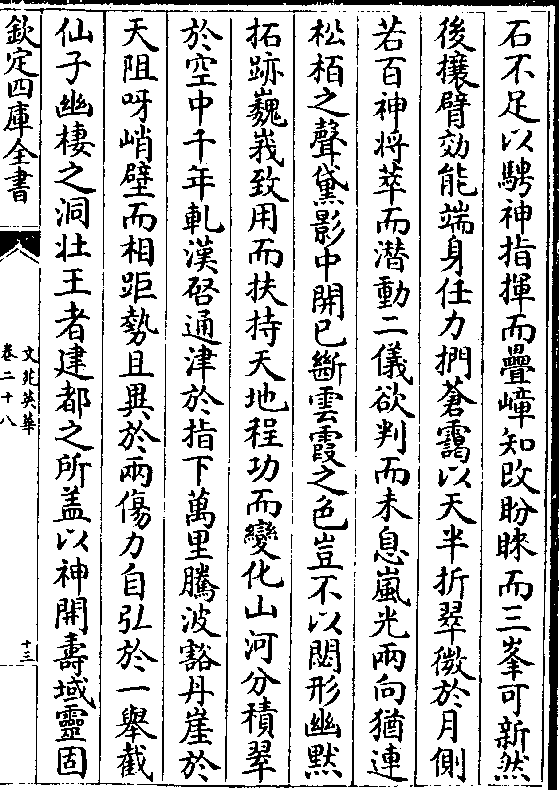 石不足以騁神指揮而疊嶂知改盼睞而三峯可新然
後攘臂効能端身任力捫蒼靄以天半折翠微於月側
若百神将萃而潜動二儀欲判而未息嵐光兩向猶連
松栢之聲黛影中開已斷雲霞之色豈不以閟形幽黙
拓跡巍峩致用而扶持天地程功而變化山河分積翠
於空中千年軋漢啓通津於指下萬里騰波豁丹崖於
天阻呀峭壁而相距勢且異於兩傷力自弘於一舉截
仙子幽棲之洞壮王者建都之所盖以神開壽域靈固
欽定四庫全書
文苑英華
卷二十八
十三